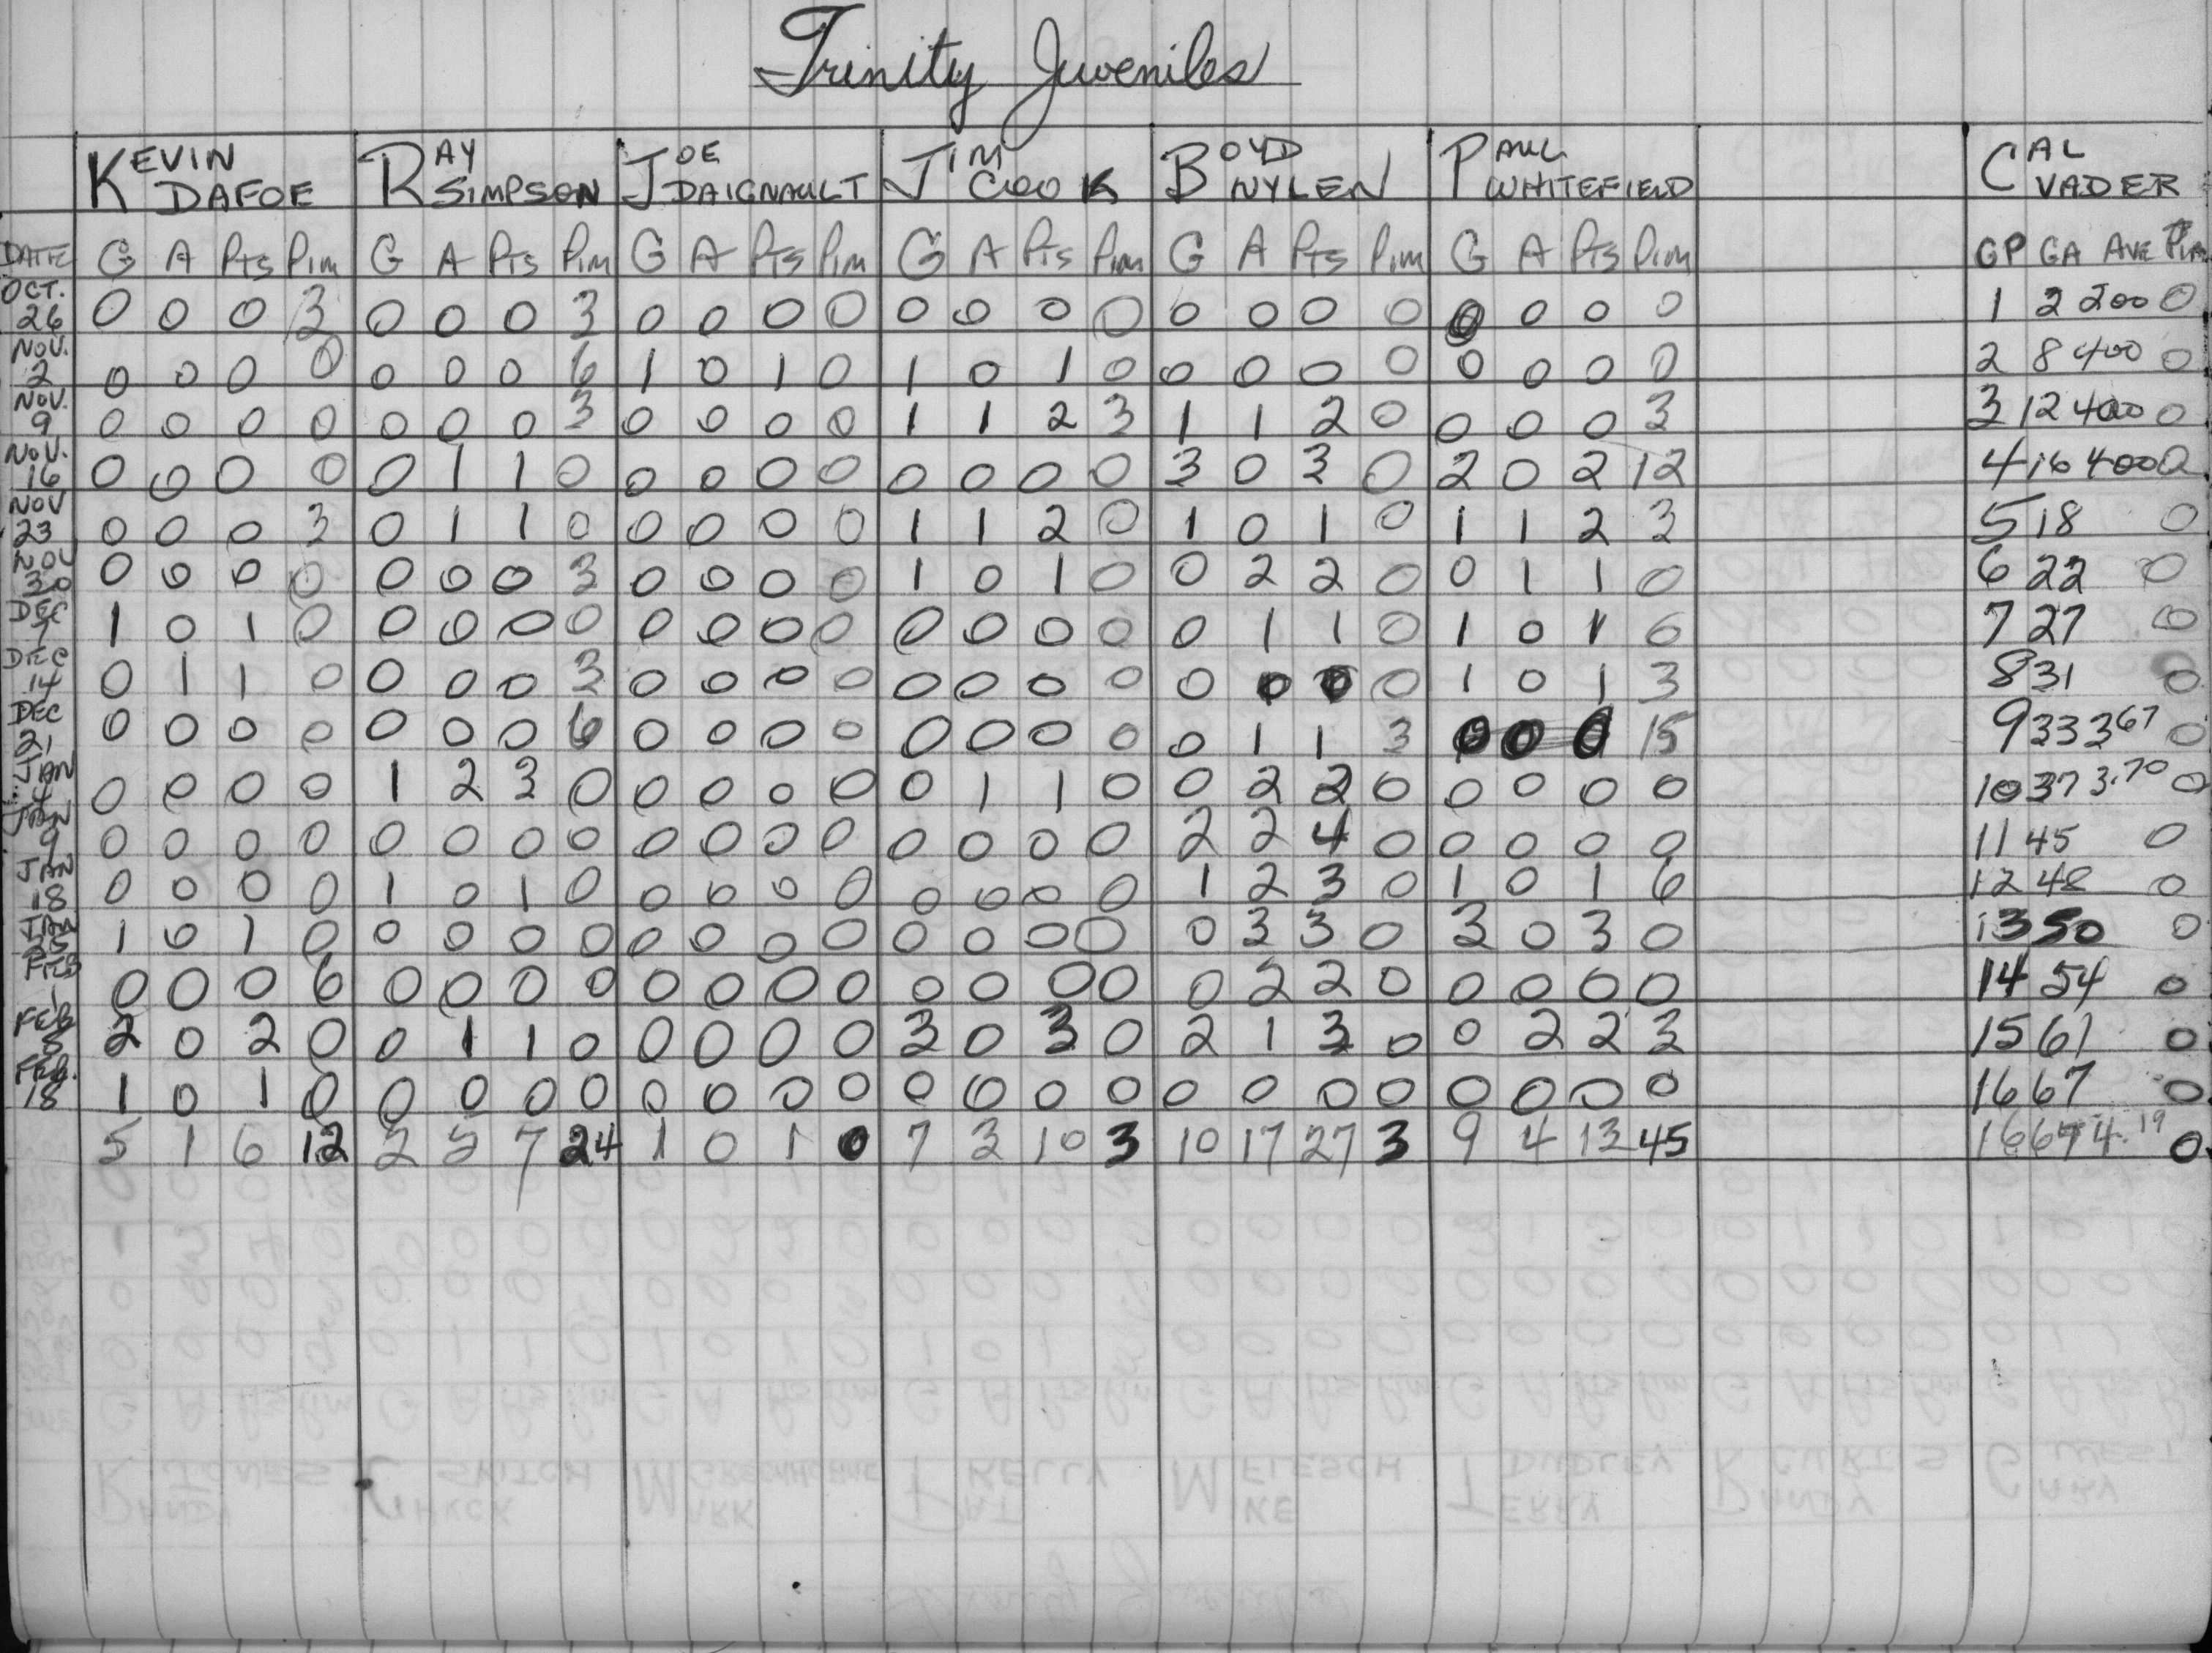 Trinity Juveniles
KEVIN DAFOE RAY SIMPSON JOE DAIGNAULT JIM COOK BOYD NYLEN PAUL WHITEFIELD CAL VADER
DATE G A Pts Pim G A Pts Pim G A Pts Pim G A Pts Pim G A Pts Pim G A Pts Pim GP GA AVE Pim
OCT. 26 0 0 0 3 0 0 0 3 0 0 0 0 0 0 0 0 0 0 0 0 0 0 0 0 1 2 200 0
NOV. 2 0 0 0 0 0 0 0 6 1 0 1 0 1 0 1 0 0 0 0 0 0 0 0 0 2 8 400 0
NOV. 9 0 0 0 0 0 0 0 3 0 0 0 0 1 1 2 3 1 1 2 0 0 0 0 3 3 12 400 0
NOV. 16 0 0 0 0 0 1 1 0 0 0 0 0 0 0 0 0 3 0 3 0 2 0 2 12 4 16 400 0
NOV 23 0 0 0 3 0 1 1 0 0 0 0 0 1 1 2 0 1 0 1 0 1 1 2 3 5 18 0
NOV 30 0 0 0 0 0 0 0 3 0 0 0 0 1 0 1 0 0 2 2 0 0 1 1 0 6 22 0
DEC 7 1 0 1 0 0 0 0 0 0 0 0 0 0 0 0 0 0 1 1 0 1 0 1 0 7 27 0
DEC 14 0 1 1 0 0 0 0 3 0 0 0 0 0 0 0 0 0 0 0 0 1 0 1 3 8 31 0
DEC 21 0 0 0 0 0 0 0 6 0 0 0 0 0 0 0 0 0 1 1 3 0 0 0 15 9 33 3 67 0
JAN 4 0 0 0 0 1 2 3 0 0 0 0 0 0 1 1 0 0 2 2 0 0 0 0 0 10 37 3.70 0
JAN 9 0 0 0 0 0 0 0 0 0 0 0 0 0 0 0 0 2 2 4 0 0 0 0 0 11 45 0
JAN 18 0 0 0 0 1 0 1 0 0 0 0 0 0 0 0 0 1 2 3 0 1 0 1 6 12 48 0
JAN 25 1 0 1 0 0 0 0 0 0 0 0 0 0 0 0 0 0 3 3 0 3 0 3 0 13 50 0
FEB 1 0 0 0 6 0 0 0 0 0 0 0 0 0 0 0 0 0 2 2 0 0 0 0 0 14 54 0
FEB 2 0 2 0 0 1 1 0 0 0 0 0 3 0 3 0 2 1 3 0 0 2 2 3 15 61 0
FEB. 18 1 0 1 0 0 0 0 0 0 0 0 0 0 0 0 0 0 0 0 0 0 0 0 0 16 67 0
5 1 6 12 2 5 7 24 1 0 1 0 7 3 10 3 10 17 27 3 9 4 13 45 16 67 4.19 0